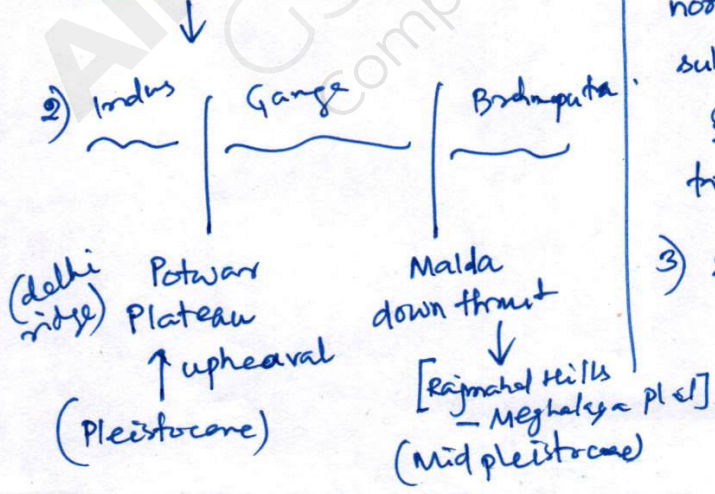 2) Indus Ganga Brahmaputra.
(delhi ridge)
Potwar Plateau
↑ upheaval
(Pleistocene)
Malda down thrust
↓
[Rajmahal Hills
- Meghalaya
(Mid pleistocene)
3)